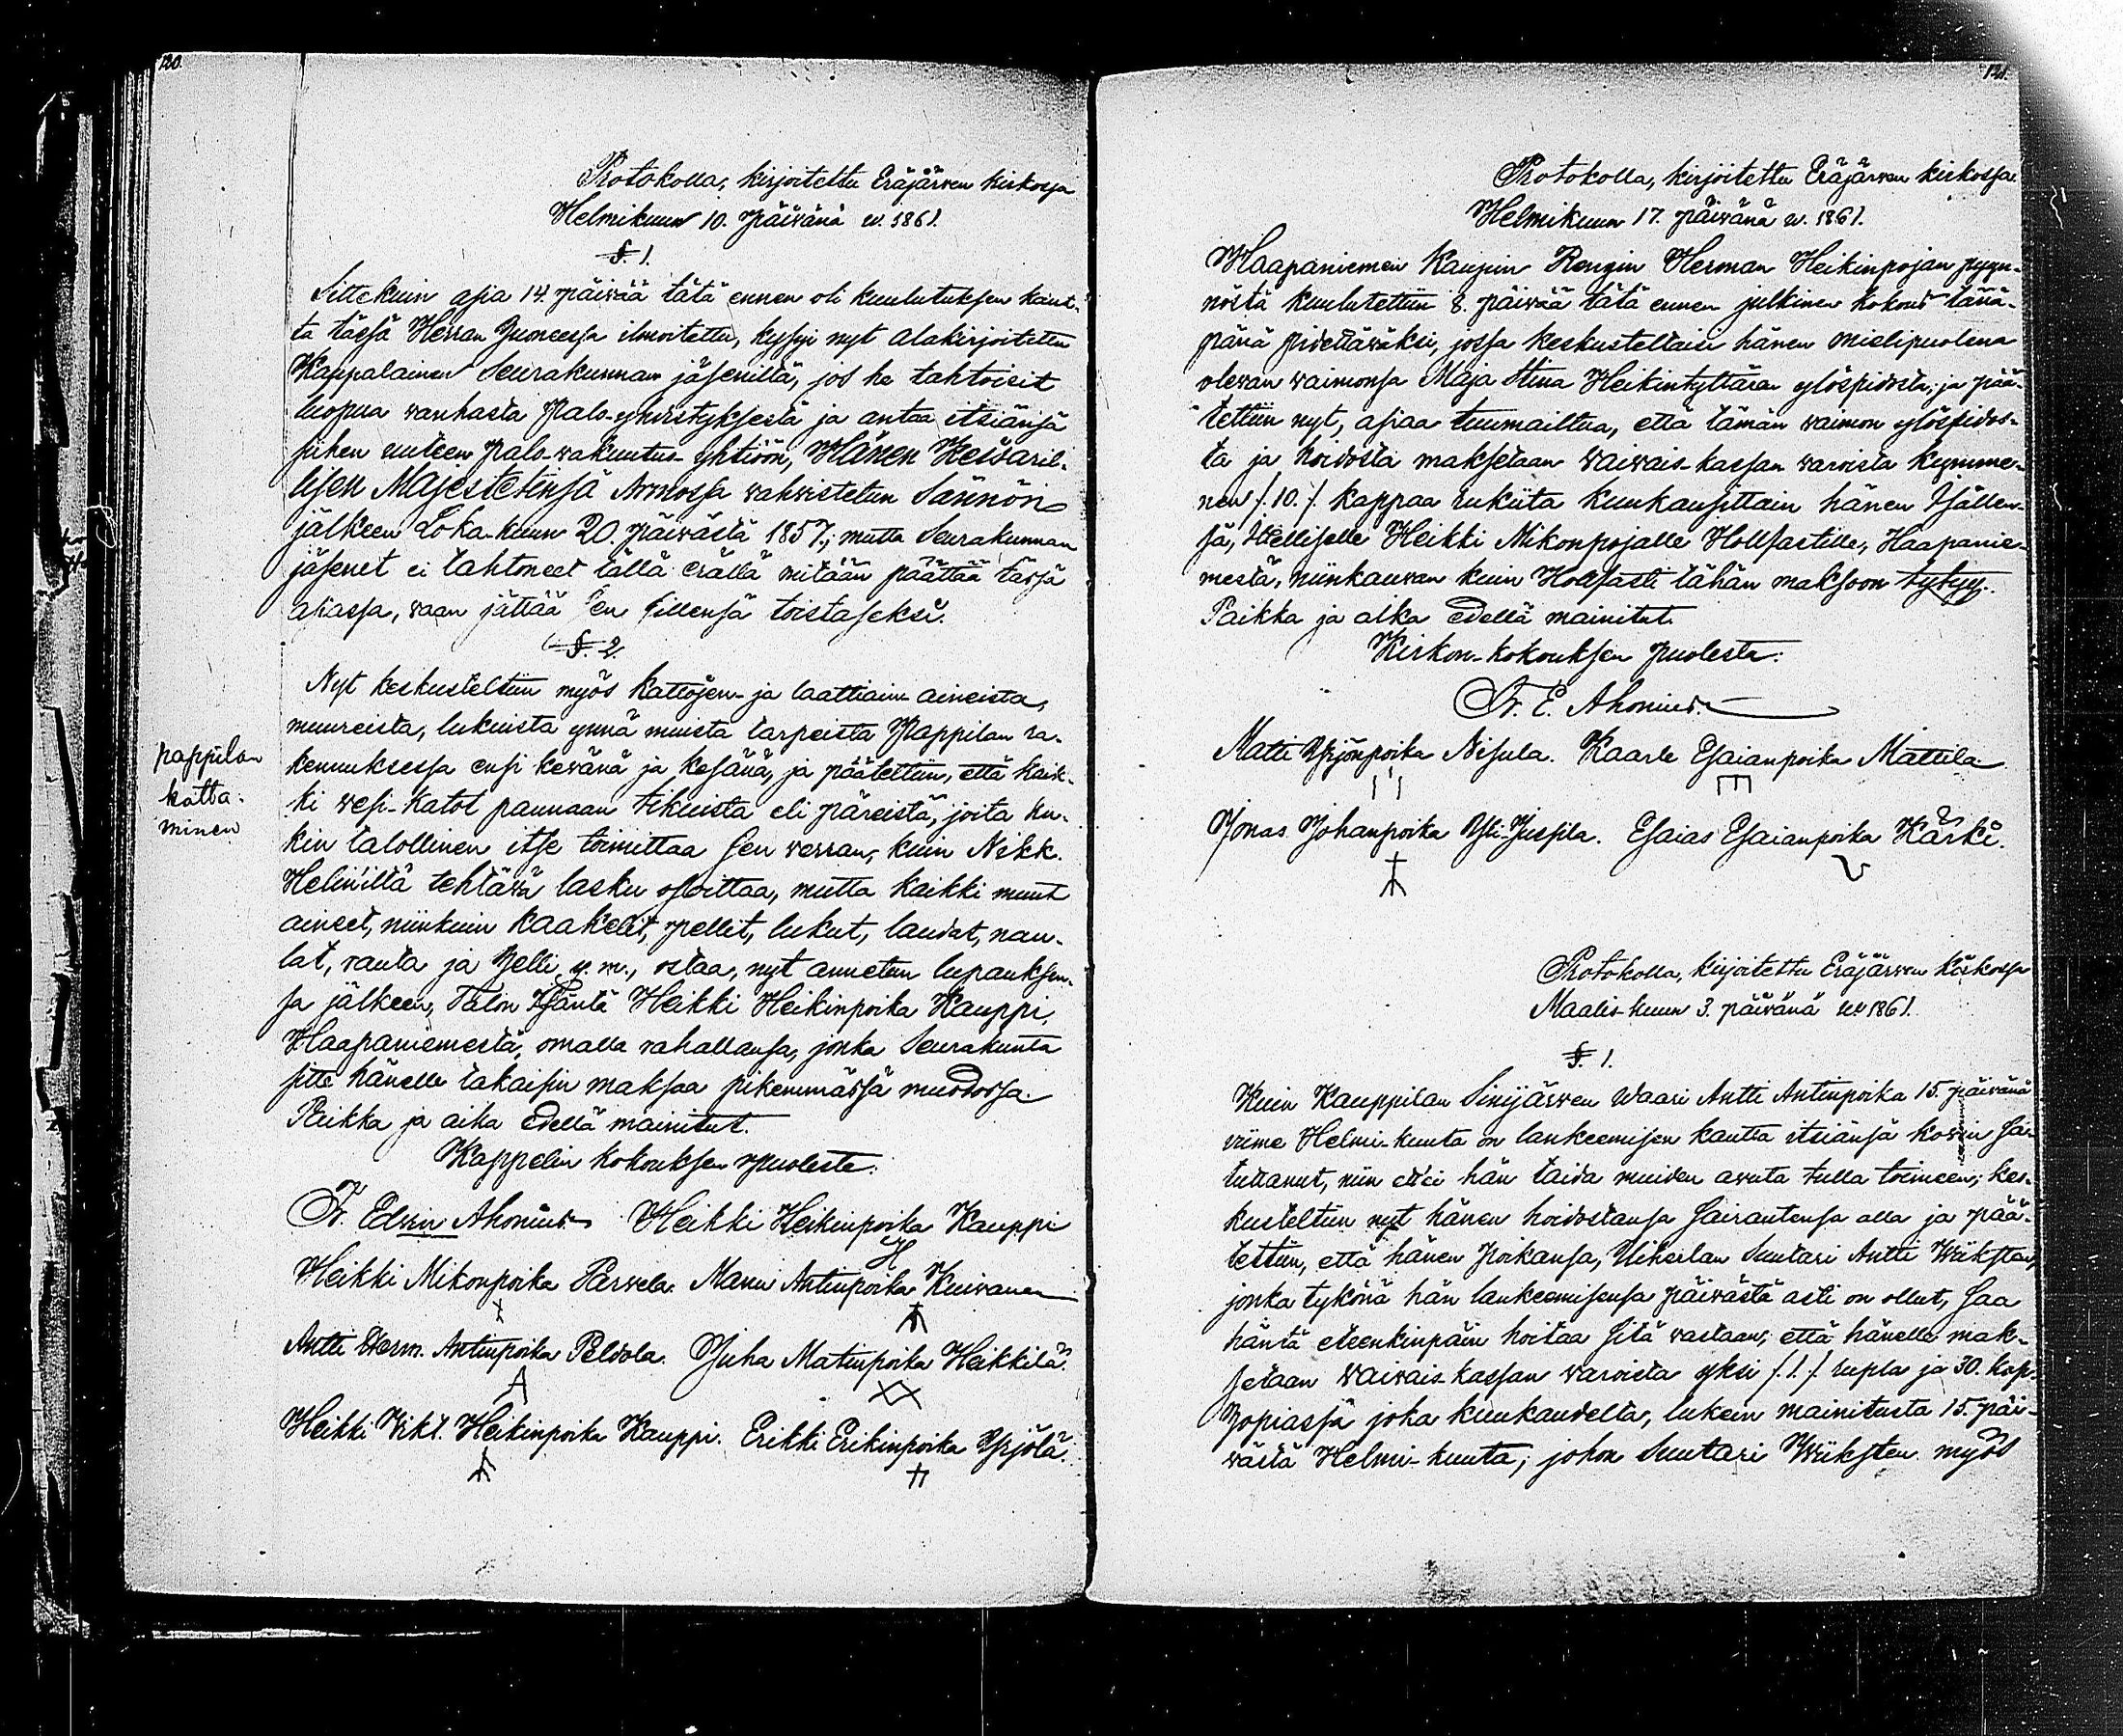 120.
Protokolla, kirjoitettu Eräjärwen kirkossa
Helmikuun 10. päivänä w. 1861.
§. 1.
Sittekuin asia 14. päivää tätä ennen oli kuulutuksen kaut-
ta täessä Herran Huoneessa ilmoitettu, kysyi nyt alakirjoitettu
Kappalainen Seurakunnan jäseniltä, jos he tahtoisit
luopua vanhasta Palo-yhdistyksestä ja antaa itsiänsä
siihen uuteen palo-wakuutus-yhtiöön, Hänen Keisaril-
lisen Majestetinsä Armossa vahvistetun Säännön
jälkeen Loka-kuun 20. päivästä 1857.; mutta Seurakunnan
jäsenet ei tahtoneet tällä erällä mitään päättää tässä
asiassa, vaan jättää sen sillensä toistaseksi.
§. 2.
Nyt keskusteltiin myös kattojen- ja laattiain aineista,
muureista, lukuista ynnä muista tarpeista Pappilan ra-
kennuksessa ensi kevänä ja kesänä, ja päätettiin, että kaik-
ki vesi-katot pannaan tikuista eli päreistä, joita ku-
kin talollinen itse toimittaa sen verran, kuin Nikk.
Heliniltä tehtävä lasku osoittaa, mutta kaikki muut
aineet, niinkuin kaakelit, pellit, lukut, laudat, nau-
lat, rauta ja Helli, y. m., ostaa, nyt annetun lupauksen-
sa jälkeen, Talon Isäntä Heikki Heikinpoika Kauppi,
Haapaniemestä, omalla rahallansa, jonka Seurakunta
sitte hänelle takaisin maksaa pikemmässä muodossa.
Paikka ja aika edellä mainitut.
pappilan
katta-
minen
Kappelin kokouksen puolesta:
Fr. Edvin Ahonius. Heikki Heikinpoika Kauppi
Heikki Mikonpoika Parvela. Manu Antinpoika Kuivanen
Antti Herm. Antinpoika Peldola. Juha Matinpoika Heikkilä.
Heikki Vikt. Heikinpoika Kauppi. Erikki Erikinpoika Yrjölä.
121.
Protokolla, kirjoitettu Eräjärwen kirkossa
Helmikuun 17. päivänä w. 1861.
Haapaniemen Kaupin Rengin Herman Heikinpojan pyyn-
nöstä kuulutettiin 8. päivää tätä ennen julkinen kokous tänä-
pänä pidettäväksi, jossa keskusteltaisi hänen mielipuolena
olevan vaimonsa Maja Stina Heikintyttären ylöspidosta; ja pää-
tettiin nyt, asiaa tuumailtua, että tämän vaimon ylöspidos-
ta ja hoidosta maksetaan Waivais-kassan varoista kymme-
nen /:10.:/ kappaa rukiita kuukausittain hänen Isällen-
sä, Itselliselle Heikki Mikonpojalle Hollfastille, Haapanie-
mestä, niinkauvan kuin Hollfasti tähän maksoon tytyy.
Paikka ja aika edellä mainitut.
Kirkon-kokouksen puolesta:
Fr. E. Ahonius.
Matti Yrjönpoika Nisula. Kaarle Esaianpoika Mattila
Jonas Johanpoika Yli-Jussila. Esaias Esaianpoika Kärki.
Protokolla, kirjoitettu Eräjärwen kirkossa
Maalis-kuun 3. päivänä w. 1861.
§. 1.
Kuin Kauppilan Sinijärven Waari Antti Antinpoika 15. päivänä
viime Helmi-kuuta on lankeemisen kautta itsiänsä kovin sai-
tuttanut, niin ettei hän taida muiden avuta tulla toimeen; kes-
kusteltiin nyt hänen hoidostansa sairautensa alla ja pää-
tettiin, että hänen poikansa, Uiherlan Suutari Antti Wiiksten,
jonka tykönä hän lankeemisensa päivästä asti on ollut, saa
häntä eteenkinpäin hoitaa sitä vastaan, että hänelle mak-
setaan Waivais-kassan varoista yksi /:1.:/ rupla ja 30. kop-
popiassa joka kuukaudelta, lukein mainitusta 15. päi-
västä Helmi-kuuta; johon Suutari Wiiksten myös